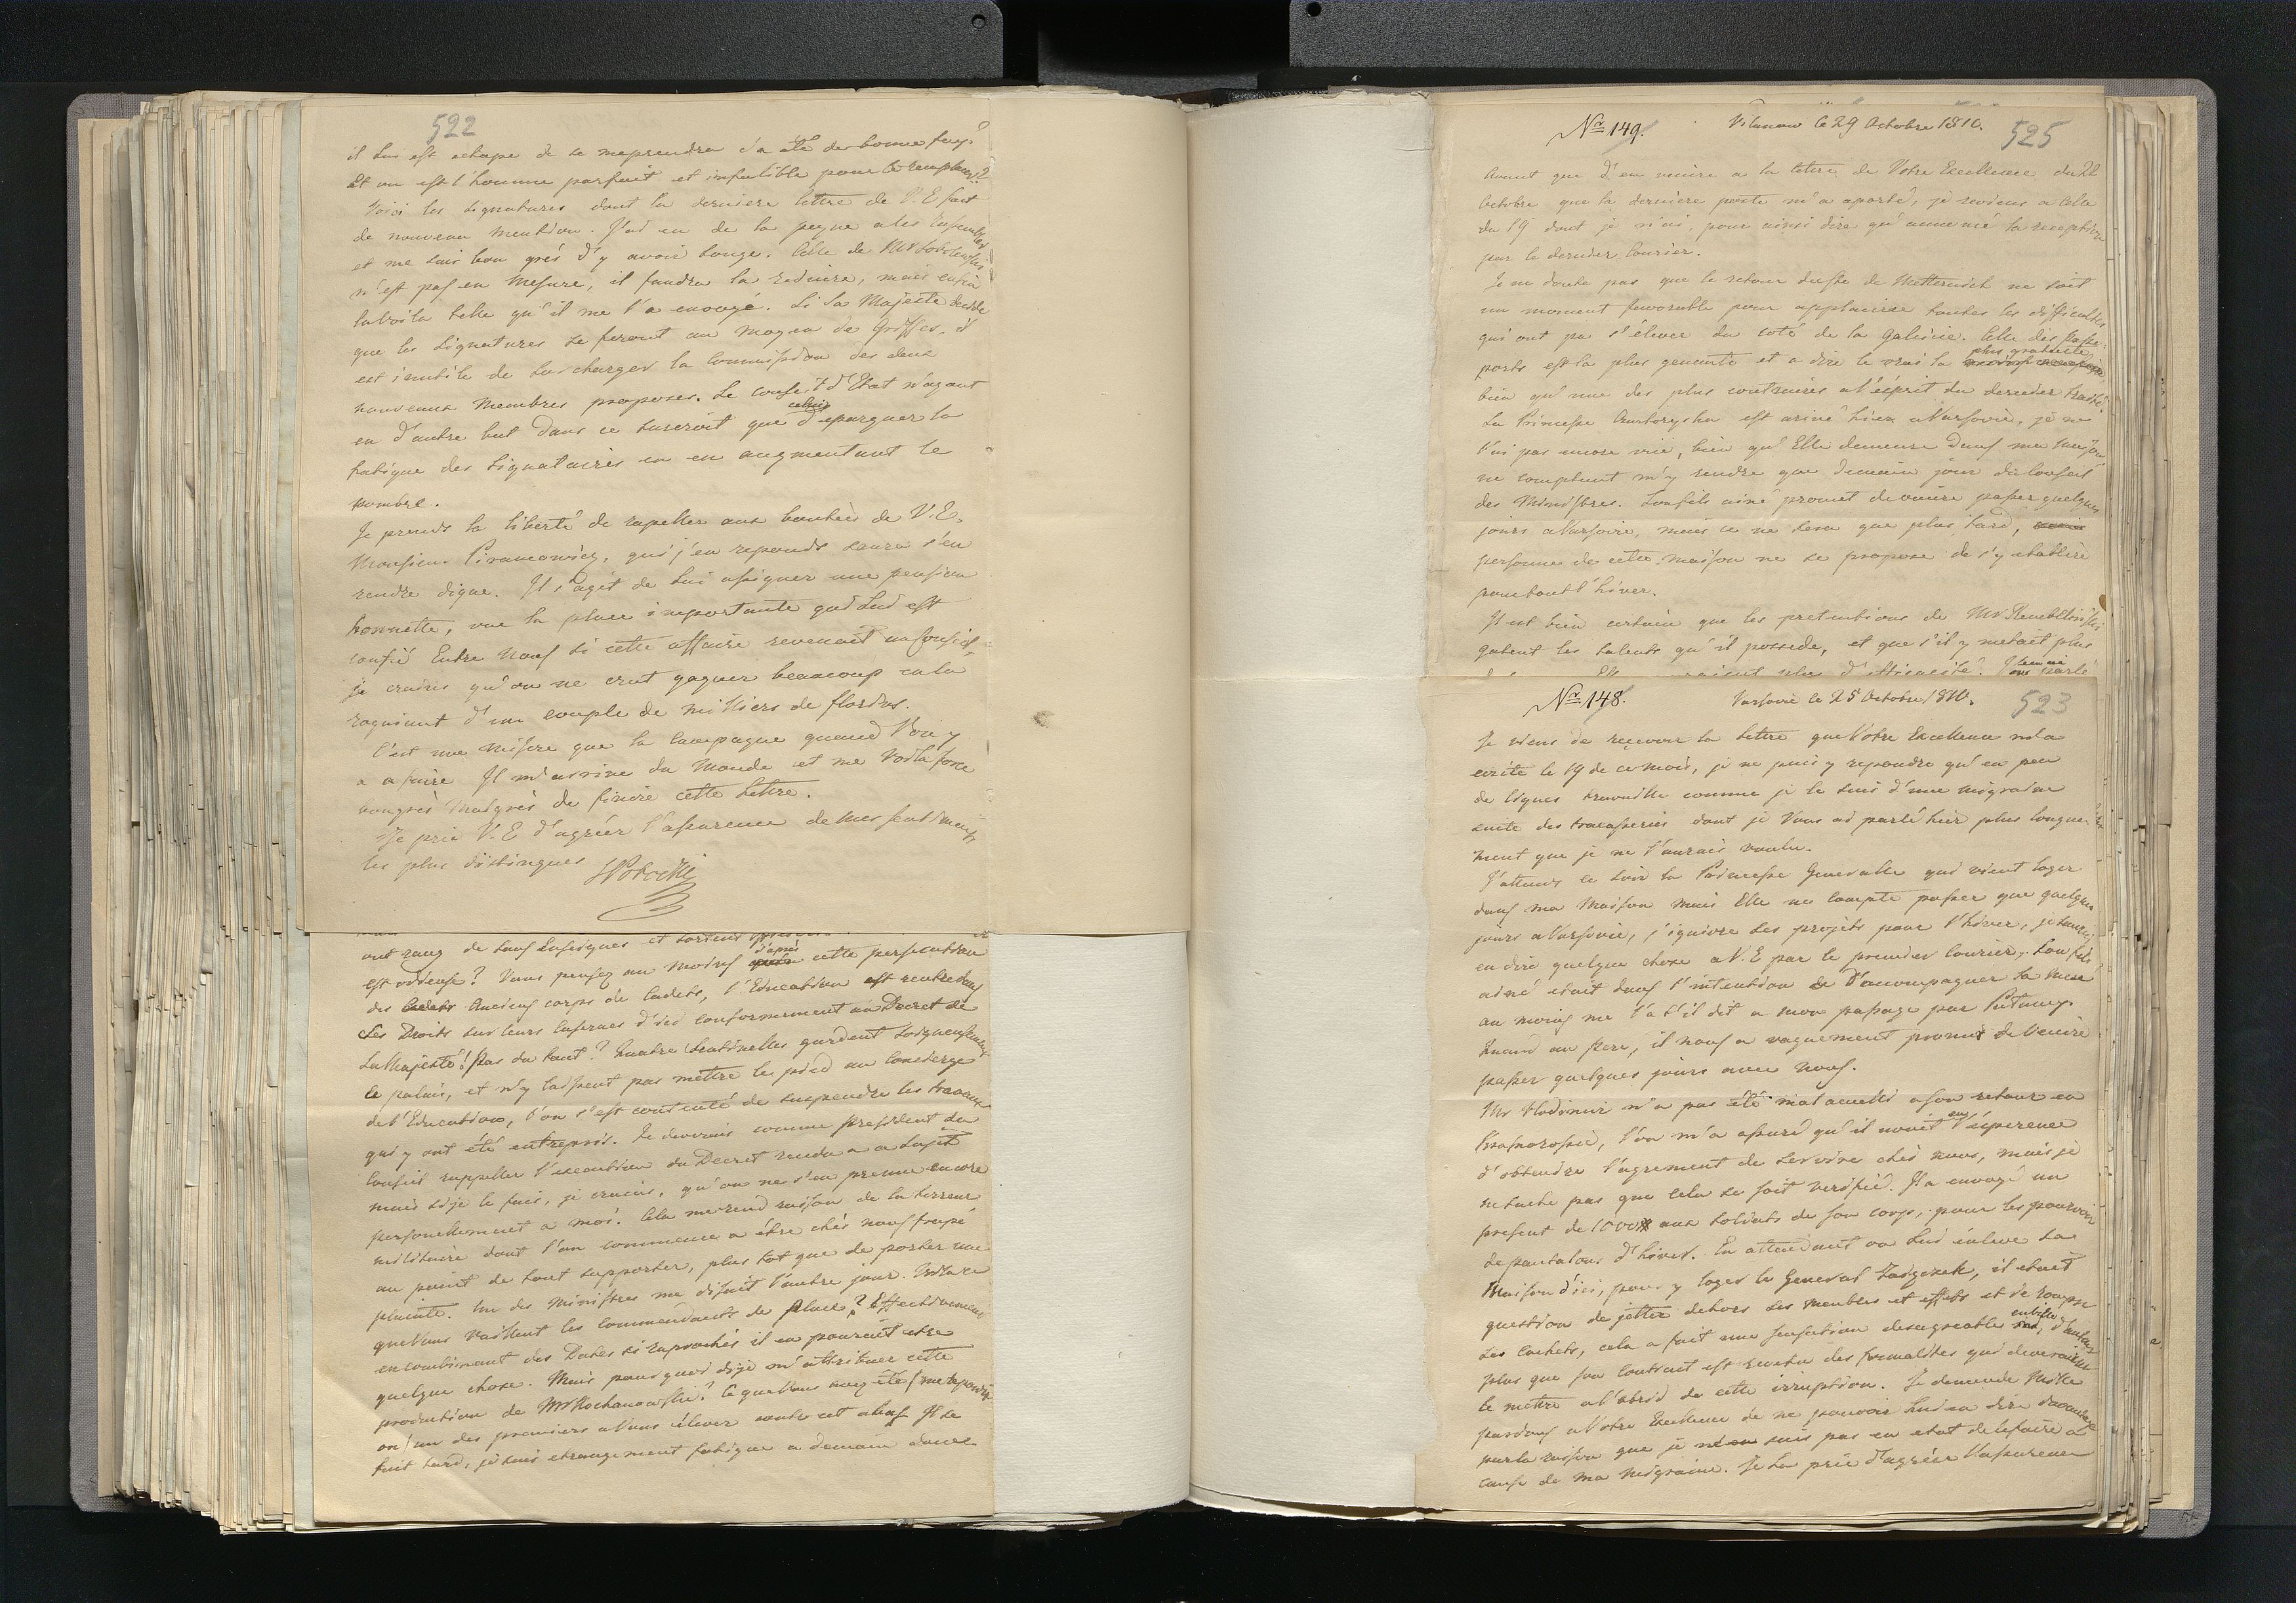 522
il lui est echapé de se meprendre ç'a été de bonne foy?
Et ou est l'homme parfait et infaïlible pour le remplacer?
Voici les signatures dont la derniere lettre de V.E. fait
de nouveau mention. J'ai eu de la peyne a les rassembler
et me sais bon grés d'y avoir songé. Celle de Mr Sobolewski
n'est pas en mesure, il faudra la reduire, mais enfin
la voila telle qu'il me l'a envoyé. Si Sa Majesté decide
que les signatures se feront au moyen de Griffes, il
est inutile de surcharger la Commission des deux
nouveaux Membres proposés. Le conseil d'Etat n'ayant
eu d'autre but dans ce surcroit que celui d'epargner la
fatigue des signataires en en augmentant le
nombre.
Je prends la liberté de rapeller aux bontées de V.E.
Monsieur Piramowicz, qui j'en reponds saura s'en
rendre digne. Il s'agit de lui assigner une pension
honnette, vue la place importante qui lui est
confié Entre nous si cette affaire revenait au Conseil
je crains qu'on ne crut gagner beaucoup en la
rognant d'un couple de milliers de florins.
C'est une misere que la Campagne quand l'on y
a a faire Il m'arrive du Monde et me voila forcé
bongrés malgrés de finire cette lettre.
Je prie V.E d'agréer l'assurance de mes sentiments
les plus distingués SPotocki
ont rang de sous Enseignes et sortent
est odieuse? Vous pensez au moins d'après cette persecution
des Anciens corps de Cadets, l'Education est rentrée dans
Ses Droits sur leurs Casernes d'ici conformement au Decret de
Sa Majesté! Pas du tout? Quatre Sentinelles gardent soigneusement
le palais, et n'y laissent pas mettre le pied au Concierge
de l'Education, l'on s'est contenté de suspendre les travaux
qui y ont été entrepris. Je deverais comme president du
Conseil rappeller l'execution du Decret rendu a ce sujet
mais si je le fais, je crains, qu'on ne s'en prenne encore
personellement a moi. Cela me rend raison de la terreur
militaire dont l'on commence a être chés nous frapé
au point de tout supporter, plus tot que de porter une
plainte. Un des Ministres me disait l'autre jour. Voila ce
que Vous vaillent les Commendants de place? Effectivement
en combinant des Dates si raprochés il en pourait etre
quelque chose. Mais pourquoi dije m'attribuer cette
production de Mr Kochanowski? Ce que Vous avez été
un des premiers a Vous élever contre cet abus Il se
fait tard, je suis etrangement fatigué a demain donc
Nr 149. Vilanow le 29 Octobre 1810. 525
Avant que d'en venire a la lettre de Votre Excellence du 22
Octobre que la derniere poste m'a aporté, je reviens a celle
du 19 dont je n'ai, pour ainsi dire qu'annoncé la reception
par le dernier Courier.
Je ne doute pas que le retour du Cte de Metternich ne soit
un moment favorable pour applanire toutes les difficultés
qui ont pu s'élever du coté de la Galicie. Celle des Passe-
ports est la plus genante et a dire le vrai la plus gratuite
bien qu'une des plus contraires a l'esprit du dernier traité.
La Princesse Czartoryska est arivé hier a Varsovie, je ne
l'ai pas encore vue, bien qu'Elle demeure dans ma maison
ne comptant m'y rendre que demain jour de Conseil
des Ministres. Son fils ainé promet de venire passer quelques
jours a Varsovie, mais ce ne sera que plus tard,
personne de cette maison ne se propose de s'y etablire
pour tout l'hiver.
Il est bien certain que les pretentions de Mr
gatent les talents qu'il possede, et que s'il y metait plus
Nr 148. Varsovie le 25 Octobre 1810. 523
Je viens de reçevoir la lettre que Votre Excellence m'a
ecrite le 19 de ce mois, je ne puis y repondre qu'en peu
de lignes travaillé comme je le suis d'une migraine
suite des tracasseries dont je Vous ai parlé hier plus longue-
ment que je ne l'aurais voulu.
J'attends ce soir la Princesse Generalle qui vient loger
dans ma Maison mais Elle ne compte passer que quelques
jours a Varsovie, j'ignore ses projets pour l'hiver, je saurai
en dire quelque chose a V.E par le premier Courier. Son fils
ainé etait dans l'intention de l'acompagner sa mere
au moins me l'a t'il dit a mon passage par Pulawy.
Quand au pere, il nous a vaguement promis de Venire
passer quelques jours avec nous.
Mr Vlodimir n'a pas été mal acuelli a son retour en
l'on m'a assuré qu'il avait eu l'esperence
d'obtendre l'agrement de servire chés nous, mais je
ne sache pas que cela se soit verifié. Il a envoyé un
present de 1000# aux soldats de son corps, pour les pourvoir
de pantalons d'hiver. En attendant on lui enleve sa
Maison d'ici, pour y loger le General Zaiączek, il etait
question de jetter dehors ses meubles et effets et de rompre
ses cachets, cela a fait une sensation desagreable en Ville, d'autant
plus que son contrait est revetu des formalités qui deveraient
le mettre a l'abris de cette irruption. Je demande Mille
pardons a Votre Excellence de ne pouvoir lui en dire davantage
par la raison que je ne suis pas en etat de le faire a
cause de ma migraine. Je La prie d'agréer l'assurence